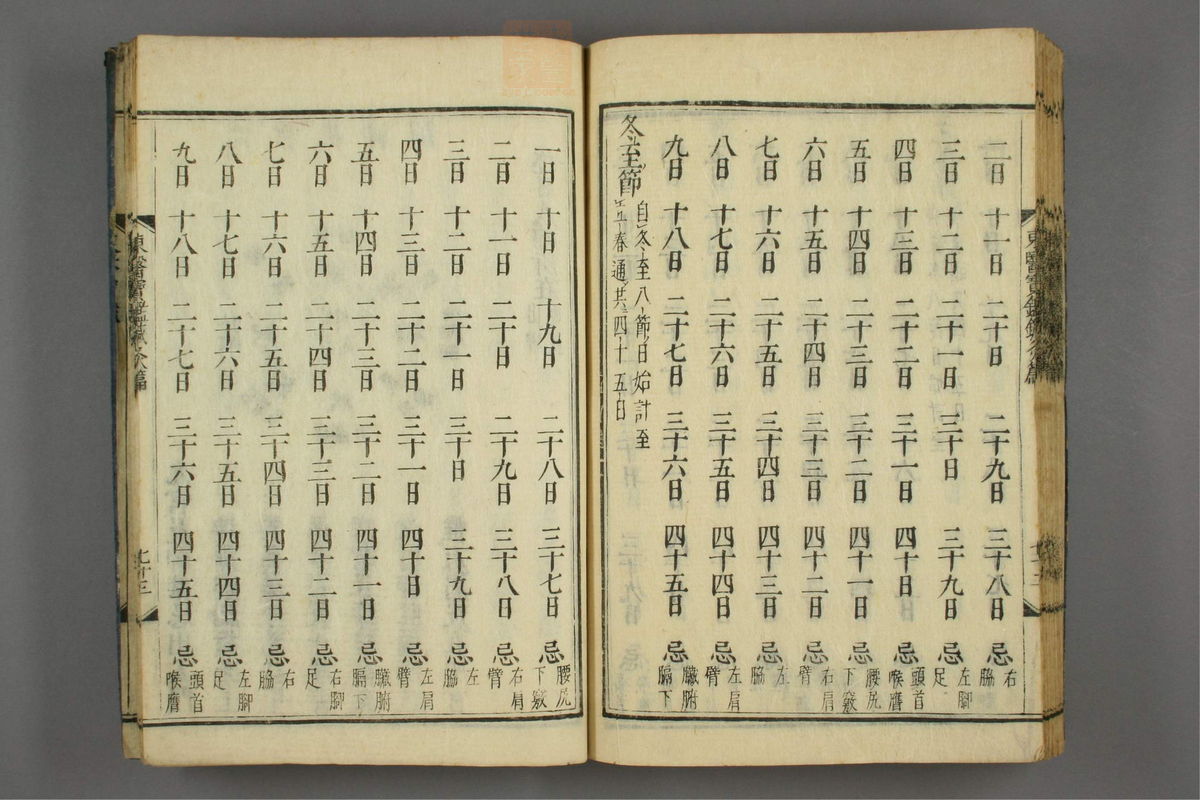 東醫寶鑑鍼灸篇
二日 十一日 二十日 二十九日 三十八日 忌右脇
三日 十二日 二十一日 三十日 三十九日 忌左腳足
四日 十三日 二十二日 三十一日 四十日 忌頭首喉膺
五日 十四日 二十三日 三十二日 四十一日 忌腰尻下竅
六日 十五日 二十四日 三十三日 四十二日 忌右肩臂
七日 十六日 二十五日 三十四日 四十三日 忌左脇
八日 十七日 二十六日 三十五日 四十四日 忌左肩臂
九日 十八日 二十七日 三十六日 四十五日 忌臟腑膈下
冬至節 自冬至八節日始計至立春通共四十五日
一日 十日 十九日 二十八日 三十七日 忌腰尻下竅
二日 十一日 二十日 二十九日 三十八日 忌右肩臂
三日 十二日 二十一日 三十日 三十九日 忌左脇
四日 十三日 二十二日 三十一日 四十日 忌左肩臂
五日 十四日 二十三日 三十二日 四十一日 忌臟腑膈下
六日 十五日 二十四日 三十三日 四十二日 忌右腳足
七日 十六日 二十五日 三十四日 四十三日 忌右脇
八日 十七日 二十六日 三十五日 四十四日 忌左腳足
九日 十八日 二十七日 三十六日 四十五日 忌頭首喉膺
東醫寶鑑鍼灸篇 七十三